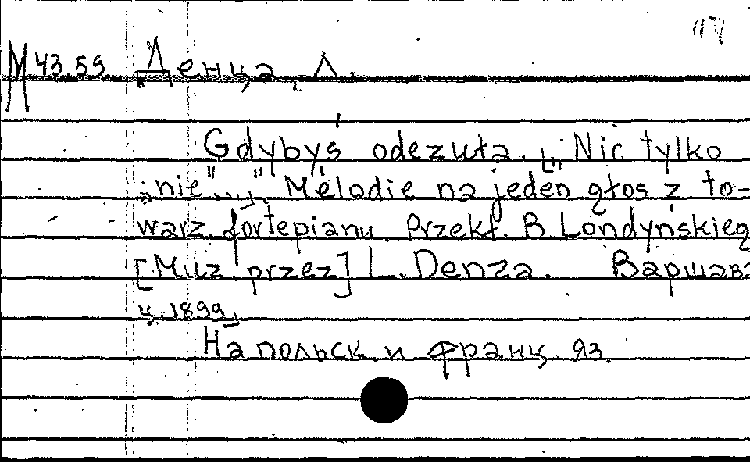 М 43.59 Денца, Л.
Gdybyś odczuła. [„Nic tylko
„nie"...] „ Mélodie na jeden głos z to-
warz. fortepianu. Przekł. B. Londyńskieg
[Muz. przez] L. Denza. Варшава
ц. 1899]
На польск. и франц. яз.